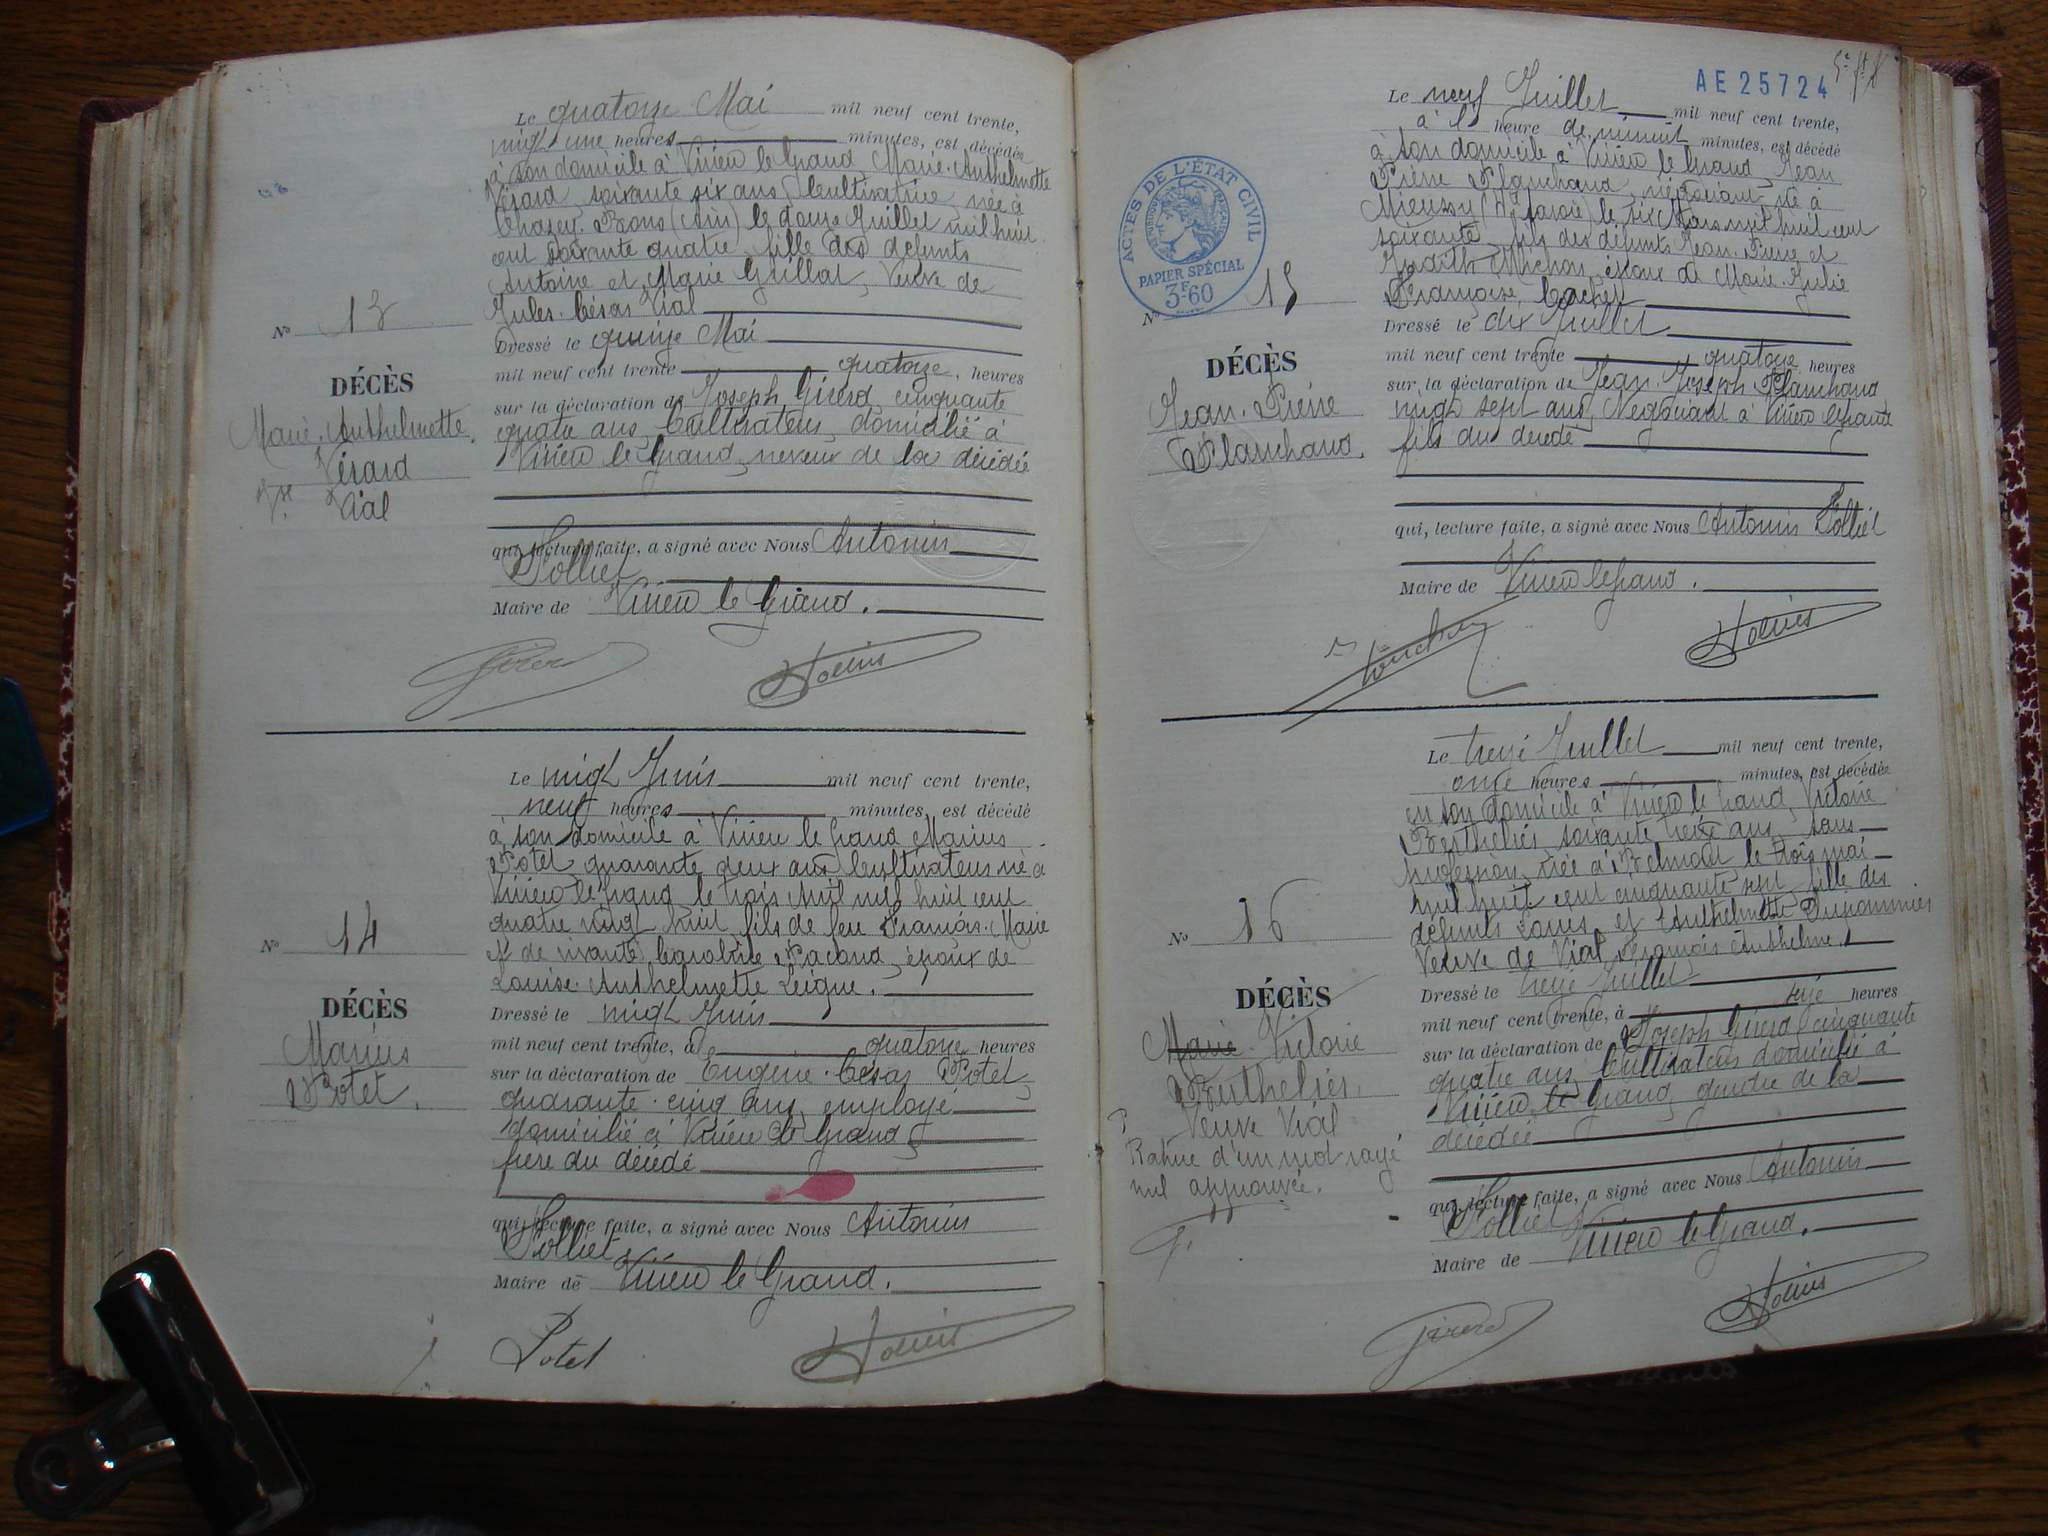 Le quatorze Mai mil neuf cent trente,
vingt une heures minutes, est décédée
à son domicile à Virieu le Grand Marie Anthelmette
Vérard soixante six ans Cultivatrice, née à
Chazey-Bons (Ain) le douze Juillet mil huit
cent soixante quatre, fille des défunts
Antoine et Marie Guillot, Veuve de
Jules César Vial
Dressé le quinze Mai
mil neuf cent trente quatorze, heures
sur la déclaration de Joseph Girerd, cinquante
quatre ans, Cultivateur, domicilié à
Virieu le Grand, neveux de la décédée
qui, lecture faite, a signé avec Nous Antonin
Polliet
Maire de Virieu le Grand.
Nº 13
DÉCÈS
Marie Anthelmette
Vérard
Vve Vial
Girerd
Le vingt Juin mil neuf cent trente,
neuf heures minutes, est décédé
à son domicile à Virieu le Grand Marius
Potet quarante deux ans Cultivateur né à
Virieu le Grand le trois Avril mil huit cent
quatre vingt huit, fils de feu François-Marie
et de vivante Caroline Pacoud, époux de
Louise Anthelmette Leigne.
Dressé le vingt Juin
mil neuf cent trente, à quatorze heures
sur la déclaration de Eugène César Potet,
quarante cinq ans, employé
domicilié à Virieu le Grand,
frère du décédé
qui, lecture faite, a signé avec Nous Antonin
Polliet
Maire de Virieu le Grand.
Nº 14
DÉCÈS
Marius
Potet.
Potet
AE 25724
ACTES DE L'ÉTAT CIVIL
PAPIER SPÉCIAL
3F60
Le neuf Juillet mil neuf cent trente,
à l' heure de minuit minutes, est décédé
à son domicile à Virieu le Grand, Jean
Pierre Planchand, négociant né à
Mieussy (Hte Savoie) le six Mars mil huit cent
soixante, fils des défunts Jean Pierre et
Judith Michon, époux de Marie Julie
Françoise Cochet
Dressé le dix Juillet
mil neuf cent trente quatorze heures
sur la déclaration de Jean Joseph Planchand
vingt sept ans, Négociant à Virieu le Grand
fils du décédé
qui, lecture faite, a signé avec Nous Antonin Polliet
Maire de Virieu le Grand.
Nº 15
DÉCÈS
Jean-Pierre
Planchand.
Le treize Juillet mil neuf cent trente,
onze heures minutes, est décédée
en son domicile à Virieu le Grand, Victoire
Berthelier soixante treize ans, sans
profession, née à Belmont le trois mai
mil huit cent cinquante sept fille des
défunts Louis et Anthelmette Dupommier
Veuve de Vial François Anthelme.
Dressé le treize Juillet
mil neuf cent trente, à seize heures
sur la déclaration de Joseph Girerd cinquante
quatre ans, Cultivateur domicilié à
Virieu le Grand, gendre de la
décédée
qui, lecture faite, a signé avec Nous Antonin
Polliet
Maire de Virieu le Grand.
Nº 16
DÉCÈS
Marie Victoire
Berthelier
Veuve Vial
Rature d'un mot rayé
nul approuvée.
Girerd